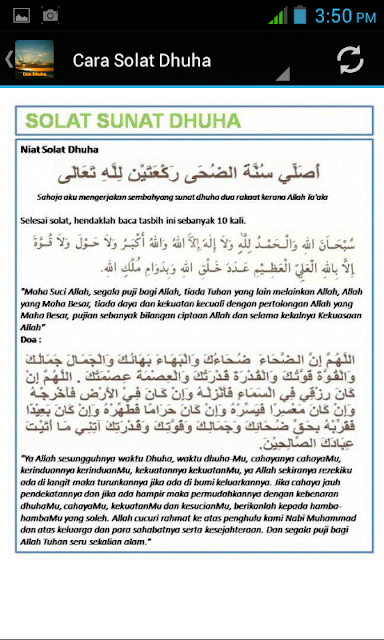 3:50 PM
Doa Dhuha
Cara Solat Dhuha
SOLAT SUNAT DHUHA
Niat Solat Dhuha
أصَلِّي سُنَّةَ الضُحَى رَكْعَتَيْنِ لِلَّهِ تَعَالَى
Sahaja aku mengerjakan sembahyang sunat dhuha dua rakaat kerana Allah Ta'ala
Selesai solat, hendaklah baca tasbih ini sebanyak 10 kali.
سُبْحَانَ اللهِ وَالْحَمْدُ لِلَّهِ وَلاَ إِلَهَ إِلاَّ اللهُ وَاللهُ أَكْبَرُ وَلاَ حَوْلَ وَلاَ قُوَّةَ
إِلاَّ بِاللهِ الْعَلِيِّ الْعَظِيْمِ عَدَدَ خَلْقِ اللهِ وَبِدَوَامِ مُلْكِ اللهِ.
"Maha Suci Allah, segala puji bagi Allah, tiada Tuhan yang lain melainkan Allah, Allah
yang Maha Besar, tiada daya dan kekuatan kecuali dengan pertolongan Allah yang
Maha Besar, pujian sebanyak bilangan ciptaan Allah dan selama kekalnya Kekuasaan
Allah"
Doa :
اَللَّهُمَّ إِنَّ الضَّحَاءَ ضَحَاءُكَ وَالْبَهَاءَ بَهَائُكَ وَالْجَمَالَ جَمَالُكَ
وَالْقُوَّةَ قُوَّتُكَ وَالْقُدْرَةَ قُدْرَتُكَ وَالْعِصْمَةَ عِصْمَتُكَ . اللَّهُمَّ إِنْ
كَانَ رِزْقِي فِي السَّمَاءِ فَأَنْزِلْهُ وَإِنْ كَانَ فِي الأَرْضِ فَأَخْرِجْهُ
وَإِنْ كَانَ مُعَسِّرًا فَيَسِّرْهُ وَإِنْ كَانَ حَرَامًا فَطَهِّرْهُ وَإِنْ كَانَ بَعِيْدًا
فَقَرِّبْهُ بِحَقِّ ضُحَائِكَ وَجَمَالِكَ وَقُوَّتِكَ وَقُدْرَتِكَ آتِنِي مَا أَتَيْتَ
عِبَادَكَ الصَّالِحِيْنَ.
"Ya Allah sesungguhnya waktu Dhuha, waktu dhuha-Mu, cahayanya cahayaMu,
kerinduonnya kerinduanMu, kekuatonnya kekuatanMu, ya Allah sekiranya rezekiku
ada di langit maka turunkannya jika ada di bumi keluarkannya. Jika cahaya jauh
pendekatannya dan jika ada hampir maka permudahkannya dengan kebenaran
dhuhaMu, cahayaMu, kekuatanMu dan kesucianMu, berikanlah kepada hamba-
hambaMu yang soleh. Allah cucuri rahmat ke atas penghulu kami Nabi Muhammad
dan atas keluarga dan para sahabatnya serta kesejahteraan. Dan segala puji bagi
Allah Tuhan seru sekalian alam."